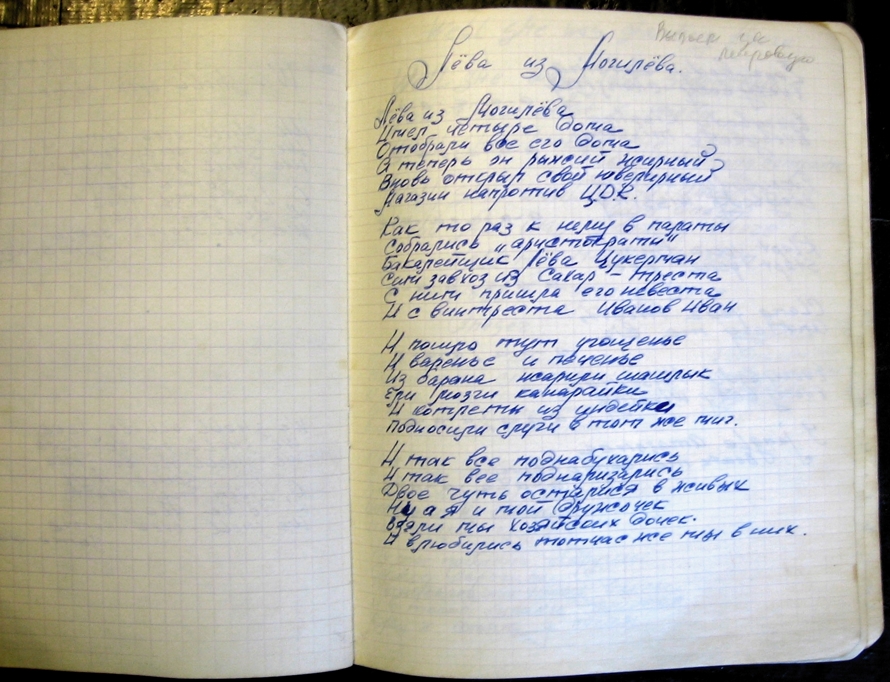 Выпьем за
Лёва из Могилёва.
Лёва из Могилёва
Имел четыре дома
Отобрали все его дома
А теперь он рыжий жирный
Вновь открыл свой ювелирный
Магазин напротив Ц.D.К.
Как то раз к нему в палаты
Собрались „аристократы"
Бакалейщик Лёва Цукерман
Сит завхоз из Сахар-Треста
С ним пришла его невеста
И с винтреста Иванов Иван
И пошло тут угощенье
И варенье и печенье
Из барана жарили шашлык
Ели мозги канарайки
И котлеты из индейки
Подносили слуги в тот же миг.
И так все поднабухались
И так все поднализались
Двое чуть осталися в живых
Ну а я и мой дружочек
Взяли мы хозяйских дочек.
И влюбились тотчас же мы в них.